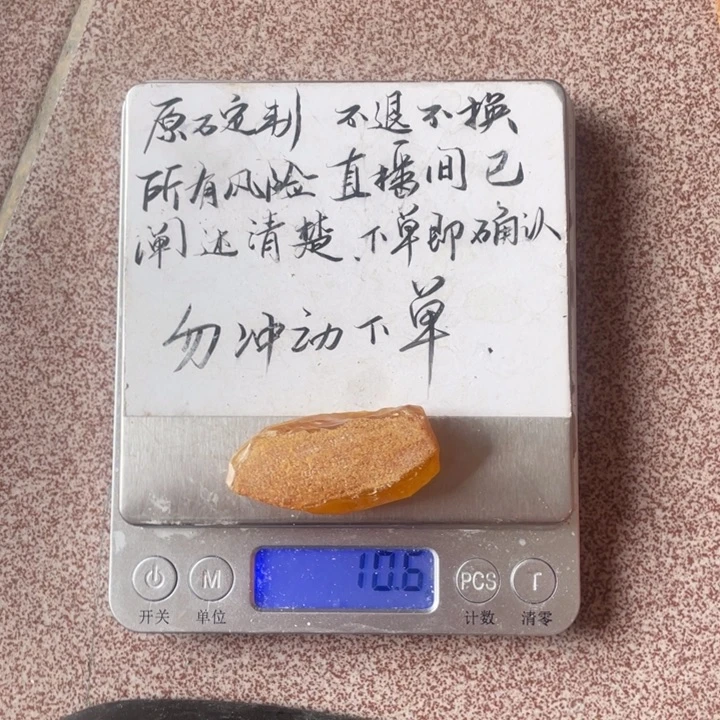 原石定制 不退不换
所有风险 直播间已
阐述清楚、下单即确认
勿冲动下单.
10.6
M PCS T
开关 单位 计数 清零